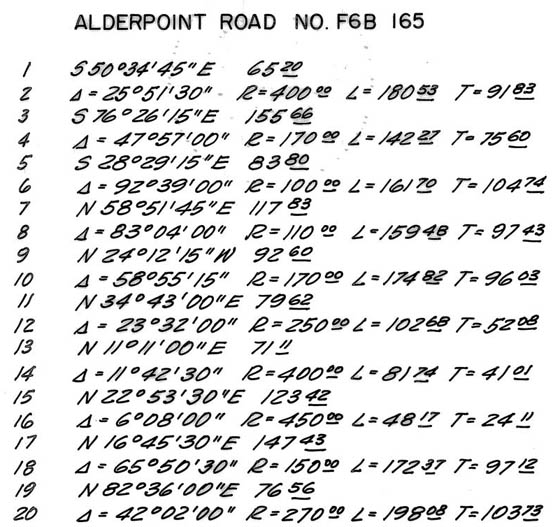 ALDERPOINT ROAD NO. F6B 165
1 S 50°34'45"E 65 20
2 Δ = 25°51'30" R = 400 00 L = 180 53 T = 91 83
3 S 76°26'15"E 155 66
4 Δ = 47°57'00" R = 170 00 L = 142 27 T = 75 60
5 S 28°29'15"E 83 80
6 Δ = 92°39'00" R = 100 00 L = 161 70 T = 104 74
7 N 58°51'45"E 117 83
8 Δ = 83°04'00" R = 110 00 L = 159 48 T = 97 43
9 N 24°12'15"W 92 60
10 Δ = 58°55'15" R = 170 00 L = 174 82 T = 96 03
11 N 34°43'00"E 79 62
12 Δ = 23°32'00" R = 250 00 L = 102 68 T = 52 08
13 N 11°11'00"E 71 11
14 Δ = 11°42'30" R = 400 00 L = 81 74 T = 41 01
15 N 22°53'30"E 123 42
16 Δ = 6°08'00" R = 450 00 L = 48 17 T = 24 11
17 N 16°45'30"E 147 43
18 Δ = 65°50'30" R = 150 00 L = 172 37 T = 97 12
19 N 82°36'00"E 76 56
20 Δ = 42°02'00" R = 270 00 L = 198 08 T = 103 73